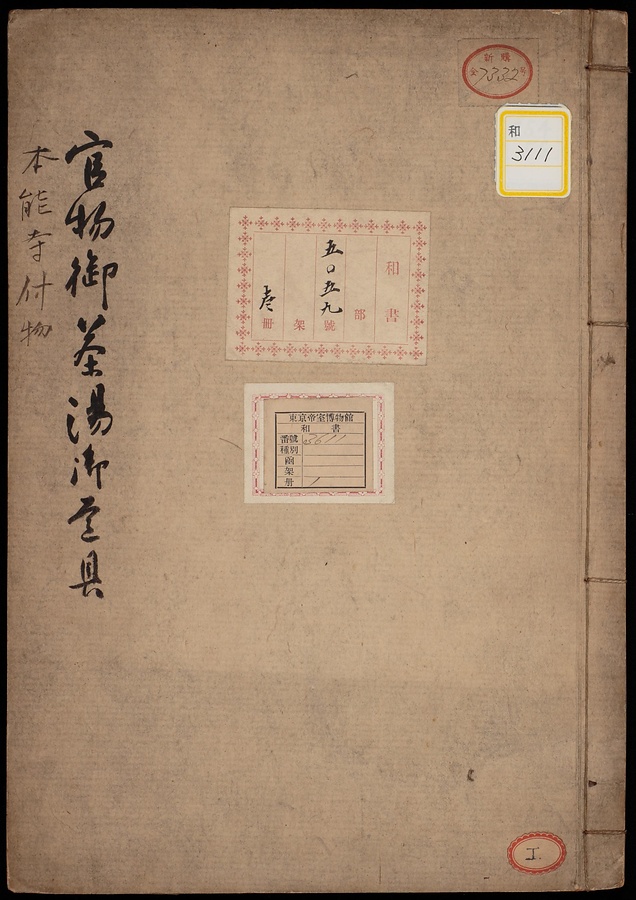 官物御茶湯御道具
本能寺付物
新購
全7332号
和
3111
和書
部
五〇五九號
架
壱冊
東京帝室博物館
和書
番號 3611
種別
函
架
册 1
工